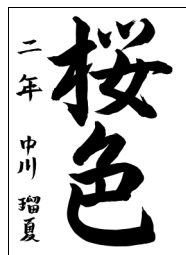 桜色
二年 中川 瑠夏